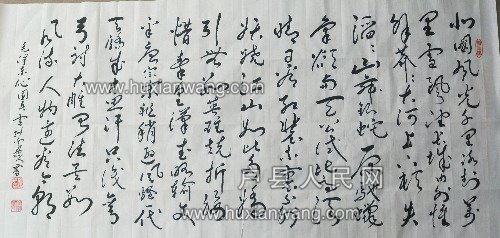 北国风光千里冰封万
里雪飘望长城内外惟
余莽莽大河上下顿失
滔滔山舞银蛇原驰蜡
象欲与天公试比高须
晴日看红装素裹分外
妖娆江山如此多娇
引无数英雄竞折腰
惜秦皇汉武略输文
采唐宗宋祖稍逊风骚一代
天骄成吉思汗只识弯
弓射大雕俱往矣数
风流人物还看今朝
毛泽东沁园春雪
户县人民网
www.huxianwang.com